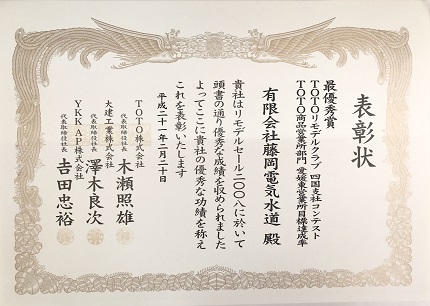 表彰状
最優秀賞
TOTOリモデルクラブ 四国支社コンテスト
TOTO商品営業所部門 愛媛東営業所目標達成率
有限会社藤岡電気水道 殿
貴社はリモデルセール二〇〇八に於いて
頭書の通り優秀な成績を収められました
よってここに貴社の優秀な功績を称え
これを表彰いたします
平成二十一年二月二十日
TOTO株式会社
代表取締役社長 木瀬照雄
大建工業株式会社
代表取締役社長 澤木良次
YKK AP株式会社
代表取締役社長 吉田忠裕